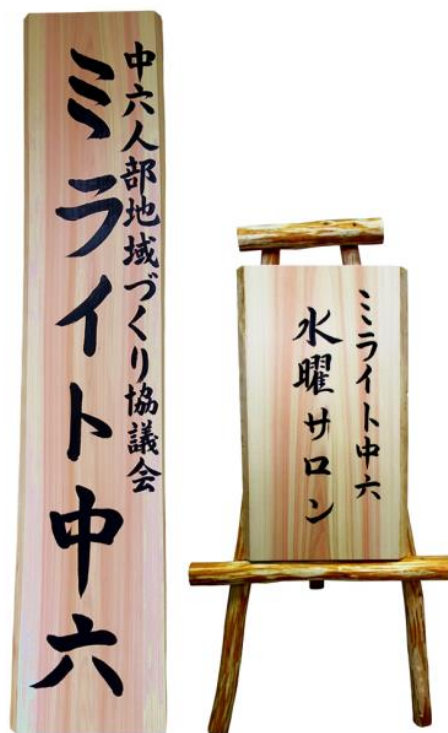 中六人部地域づくり協議会
ミライト中六
ミライト中六
水曜サロン